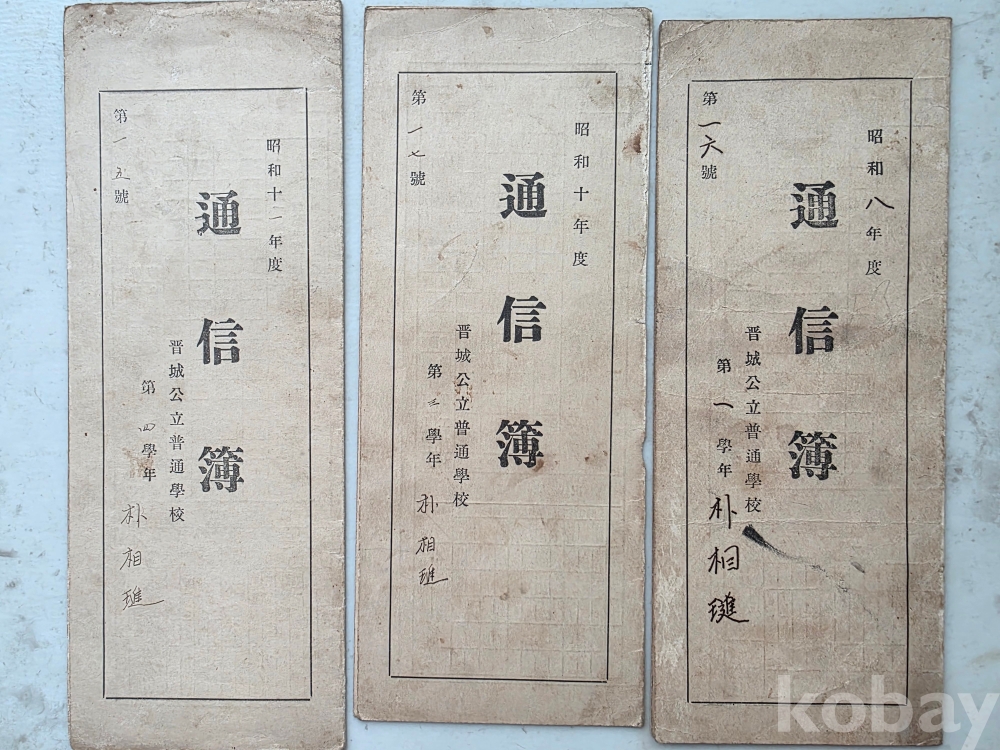 昭和八年度
第一六號
通信簿
晋城公立普通學校
第一學年
朴相璡
昭和十年度
第一七號
通信簿
晋城公立普通學校
第三學年
朴相璡
昭和十一年度
第一五號
通信簿
晋城公立普通學校
第四學年
朴相璡
kobay